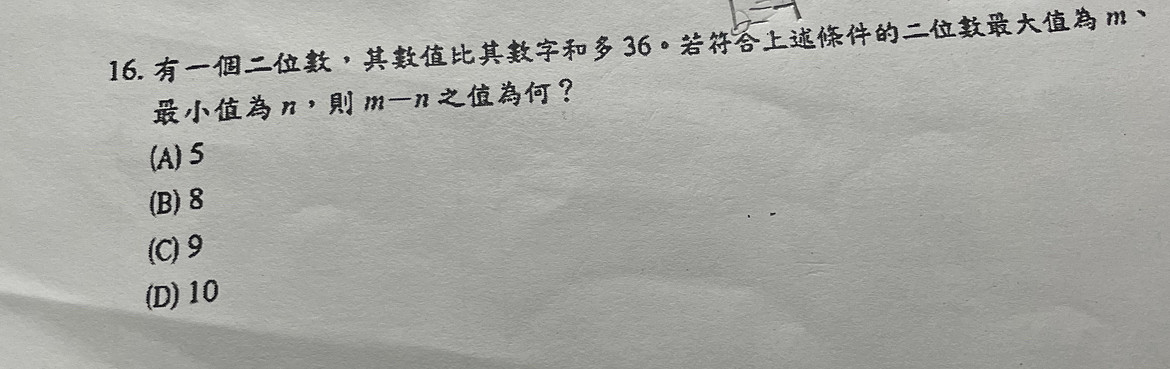 16. 有一個二位數，其數值比其數字和多 36。若符合上述條件的二位數最大值為 m、
最小值為 n，則 m－n 之值為何？
(A) 5
(B) 8
(C) 9
(D) 10